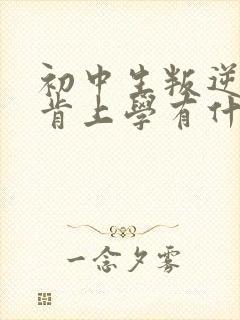 初中生叛逆
肯上學有什
一念夕雾